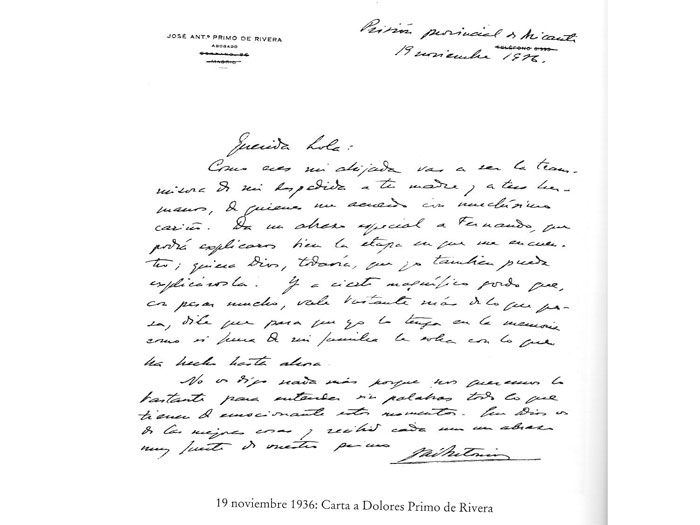 JOSÉ ANT.º PRIMO DE RIVERA
ABOGADO
MADRID
Prisión provincial de Alicante
TELÉFONO
19 noviembre 1936.
Querida Lola:
Como eres mi ahijada vas a ser la trans-
misora de mi despedida a tu madre y a tus her-
manos, de quienes me acuerdo con muchísimo
cariño. Da un abrazo especial a Fernando, que
podrá explicaros bien la etapa en que me encuen-
tro; quiera Dios, todavía, que yo también pueda
explicárosla. Y a cierto magnífico gordo que,
con pesar mucho, vale bastante más de lo que pe-
sa, dile que para que yo lo tenga en la memoria
como si fuera de mi familia le sobra con lo que
ha hecho hasta ahora.
No os digo nada más porque nos queremos lo
bastante para entender sin palabras todo lo que
tienen de emocionante estos momentos. Que Dios os
dé las mejores cosas y recibid cada uno un abrazo
muy fuerte de vuestro primo
José Antonio
19 noviembre 1936: Carta a Dolores Primo de Rivera